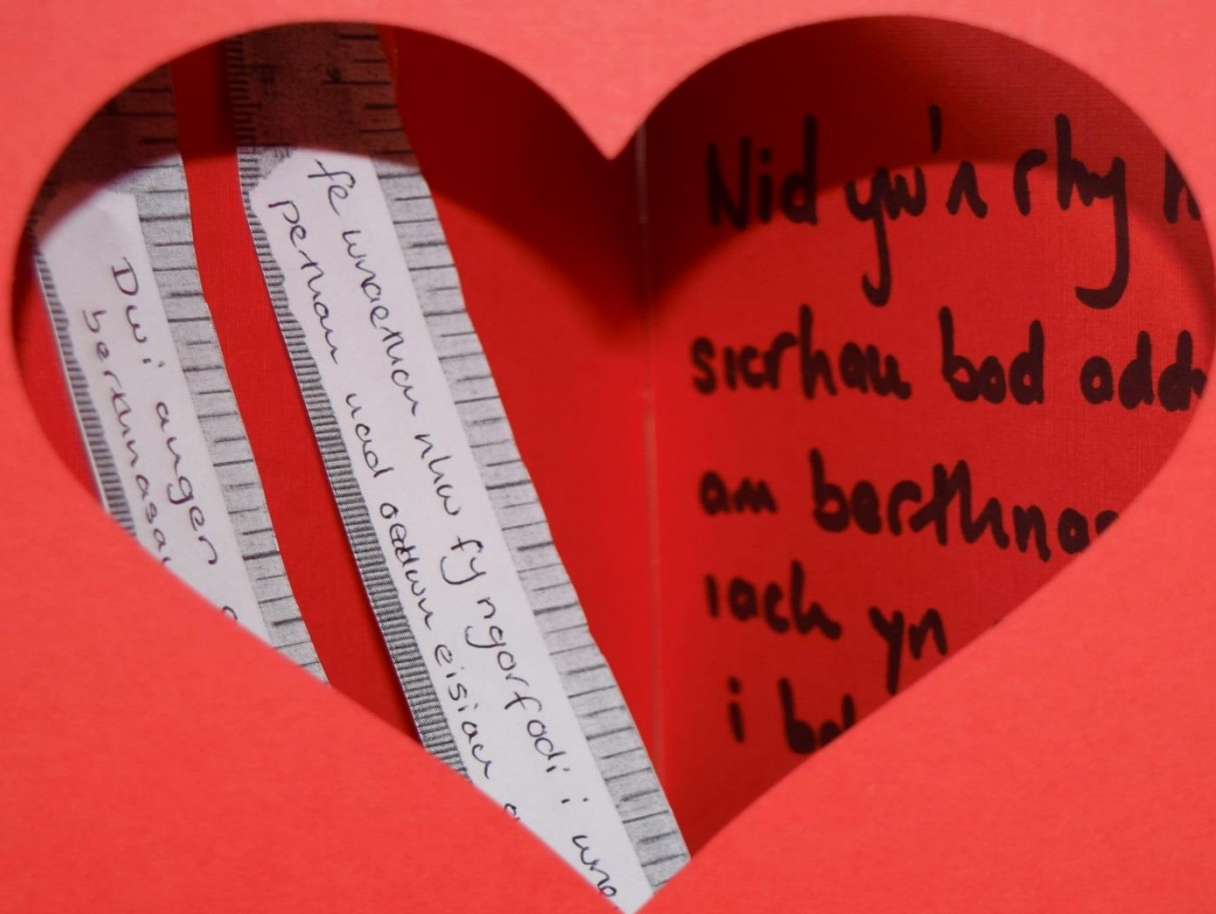 Dwi angen
berthnasau
fe wnaethon nhw fy ngorfodi i wno
pethau nad oeddwn eisiau
Nid yw'n rhy
sicrhau bod add
am berthnas
iach yn
i bo